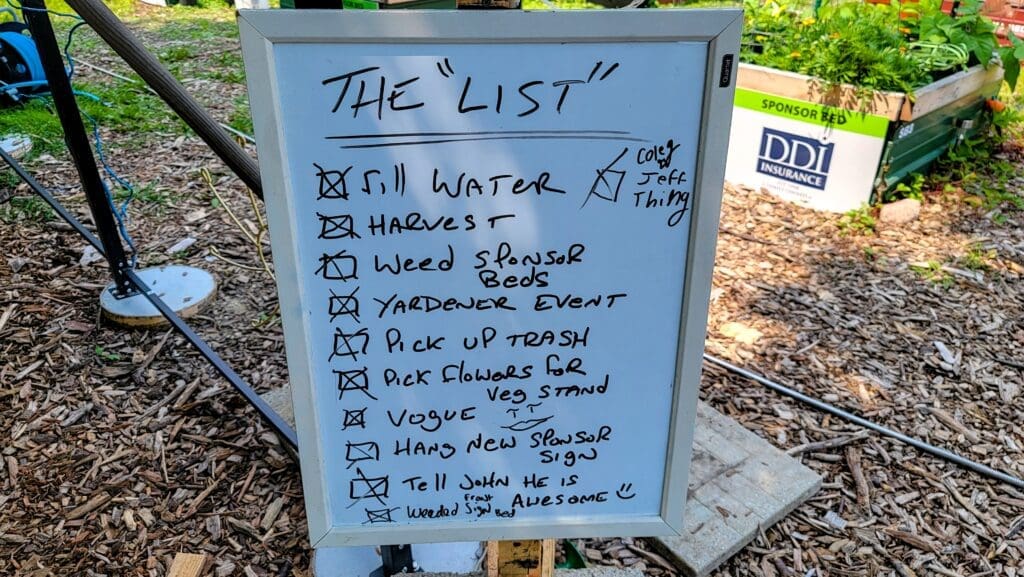 THE "LIST"
Jill WATER
HARVEST
Weed Sponsor
Beds
YARDENER EVENT
Pick UP TRASH
Pick flowers for
Veg STAND
VOGUE
HANG NEW SPONSOR
SIGN
Tell JOHN HE IS
AWESOME
Weeded Front
Sign Bed
Jeff
Thing
Quartet
SPONSOR BED
DDi
INSURANCE